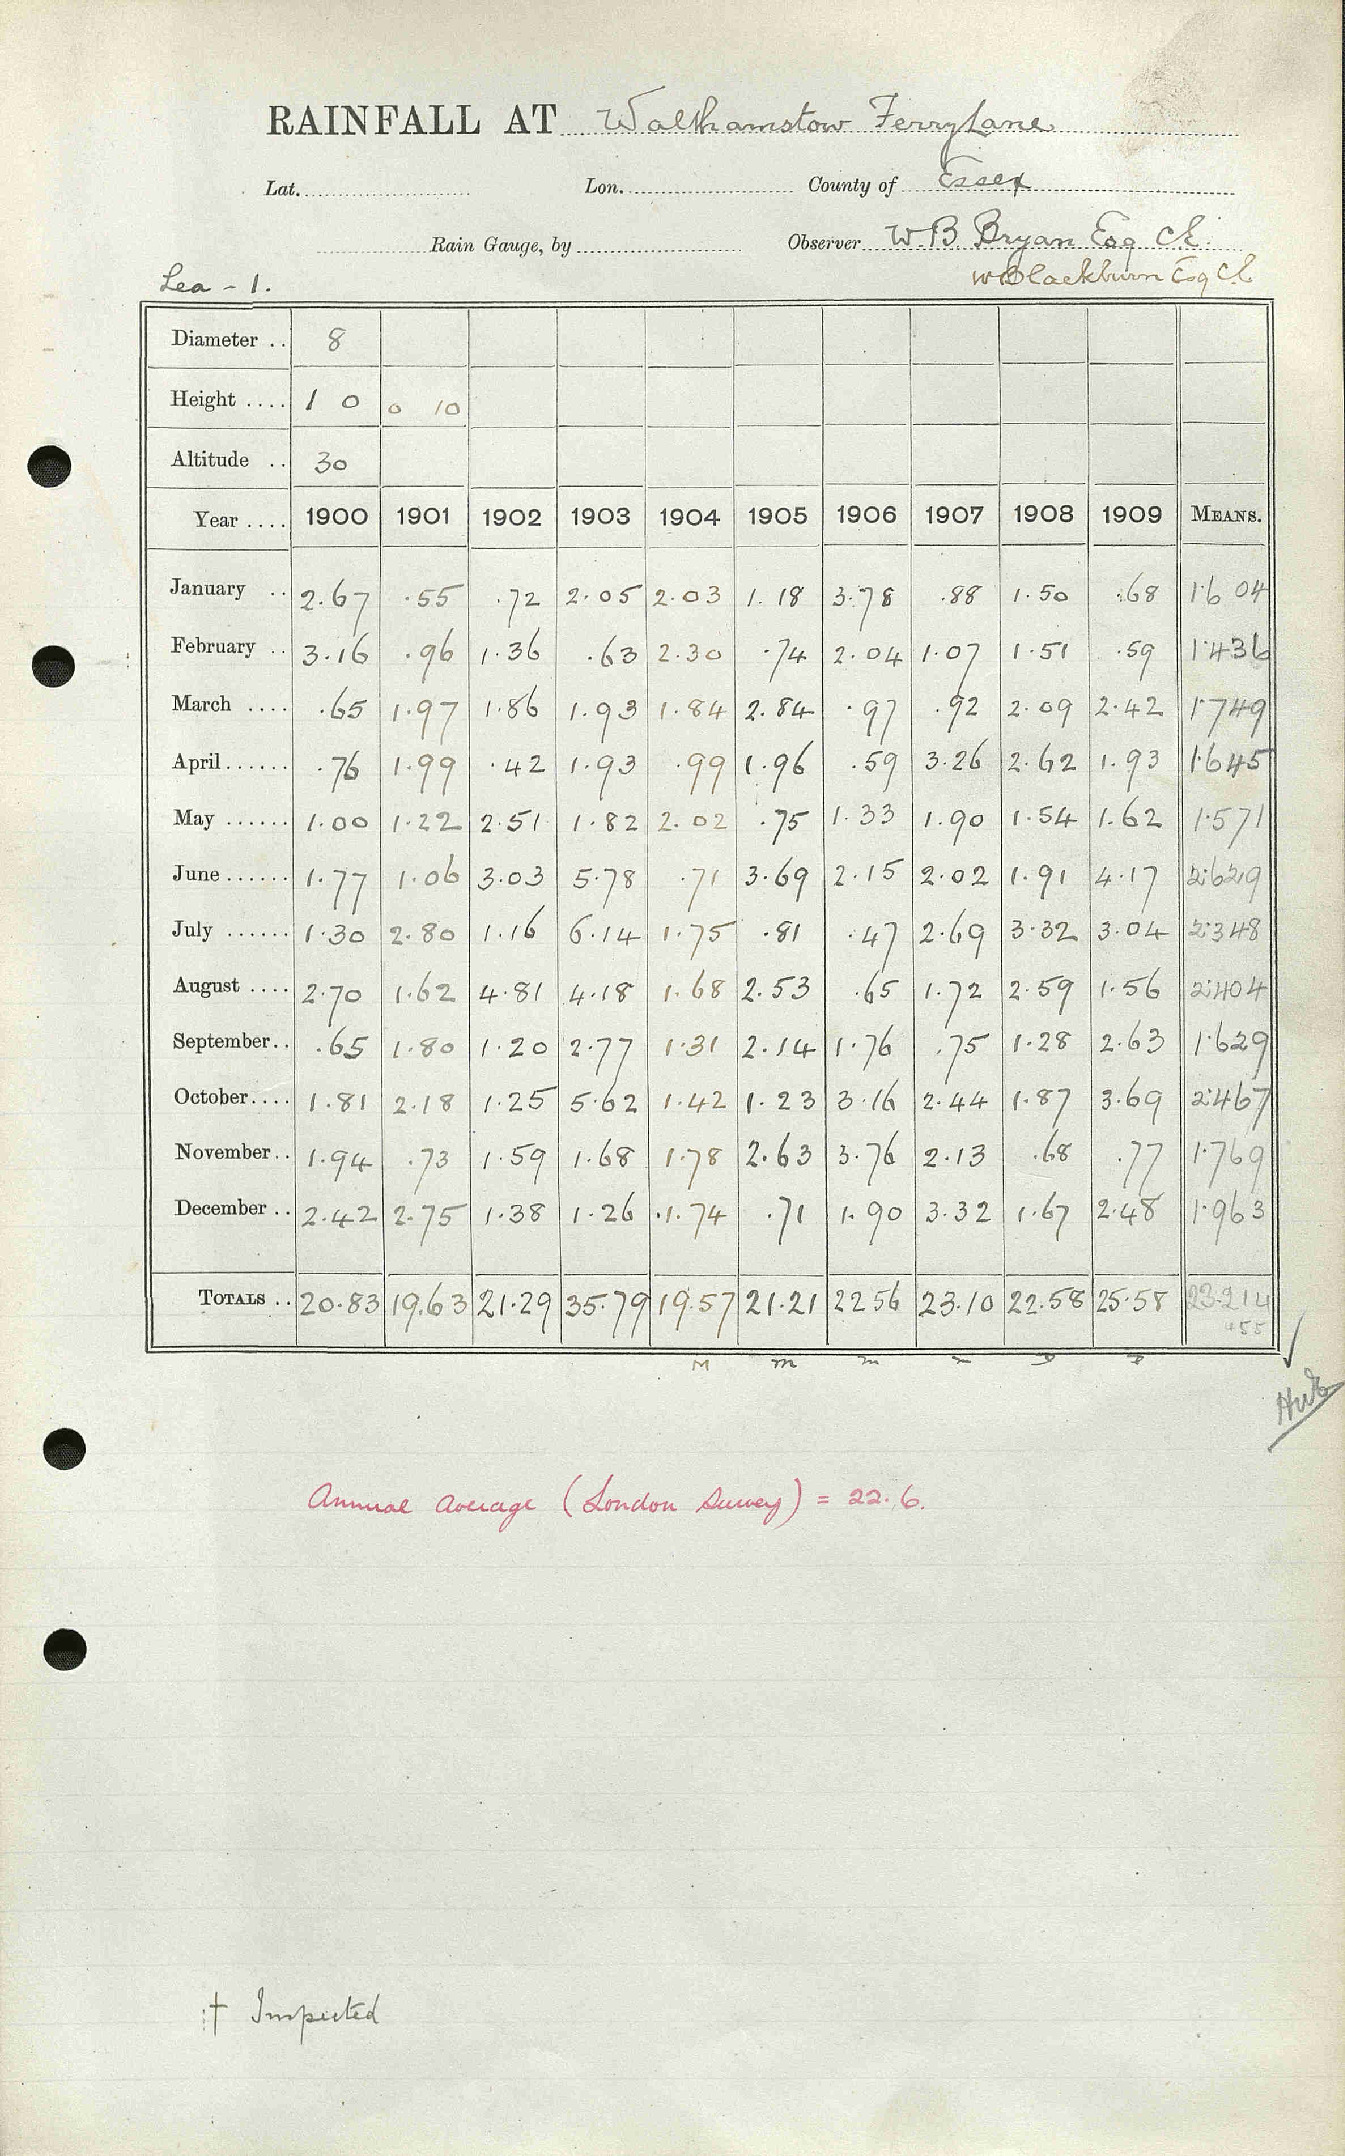 RAINFALL AT Walthamstow Ferry Lane
Lat. Lon. County of Essex
Rain Gauge, by Observer W.B. Bryan Esq C.E.
Lea - 1. W Blackburn Esq C.E
Diameter .. 8
Height .... 1 0 0 10
Altitude .. 30
Year .... 1900 1901 1902 1903 1904 1905 1906 1907 1908 1909 MEANS.
January .. 2.67 .55 .72 2.05 2.03 1.18 3.78 .88 1.50 .68 1.604
February .. 3.16 .96 1.36 .63 2.30 .74 2.04 1.07 1.51 .59 1.436
March .... .65 1.97 1.86 1.93 1.84 2.84 .97 .92 2.09 2.42 1.749
April...... .76 1.99 .42 1.93 .99 1.96 .59 3.26 2.62 1.93 1.645
May ...... 1.00 1.22 2.51 1.82 2.02 .75 1.33 1.90 1.54 1.62 1.571
June...... 1.77 1.06 3.03 5.78 .71 3.69 2.15 2.02 1.91 4.17 2.629
July ...... 1.30 2.80 1.16 6.14 1.75 .81 .47 2.69 3.32 3.04 2.348
August .... 2.70 1.62 4.81 4.18 1.68 2.53 .65 1.72 2.59 1.56 2.404
September.. .65 1.80 1.20 2.77 1.31 2.14 1.76 .75 1.28 2.63 1.629
October.... 1.81 2.18 1.25 5.62 1.42 1.23 3.16 2.44 1.87 3.69 2.467
November.. 1.94 .73 1.59 1.68 1.78 2.63 3.76 2.13 .68 .77 1.769
December .. 2.42 2.75 1.38 1.26 1.74 .71 1.90 3.32 1.67 2.48 1.963
TOTALS .. 20.83 19.63 21.29 35.79 19.57 21.21 22 56 23.10 22.58 25.58 23.214
455
M m m
Annual average (London Survey) = 22.6.
† Inspected